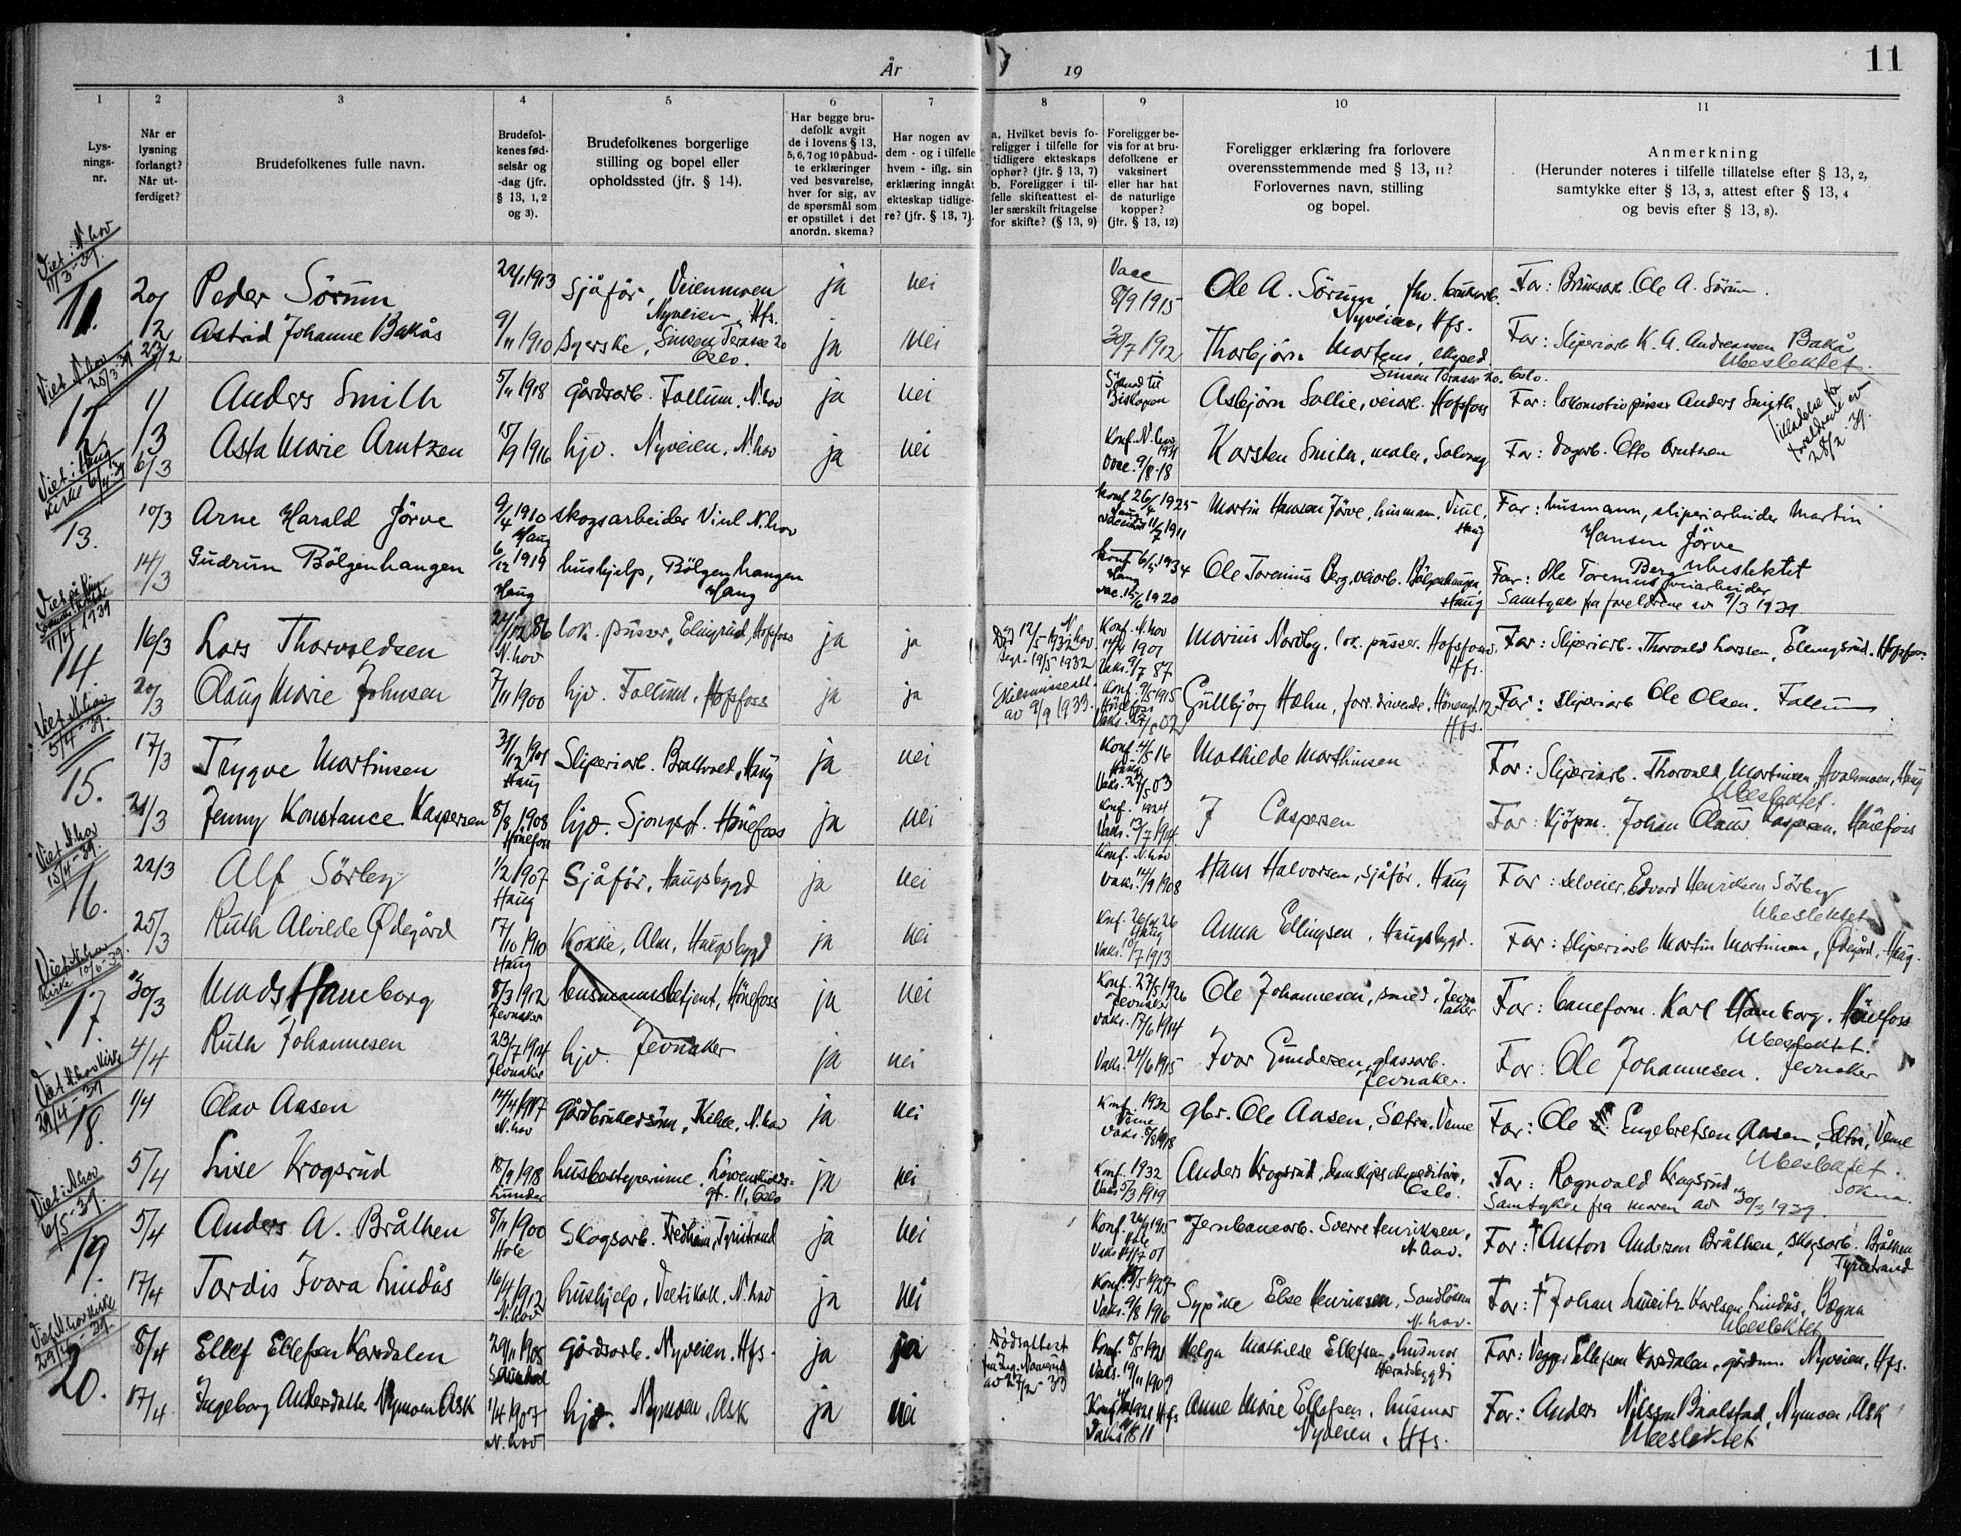 År 19
11
1 2 3 4 5 6 7 8 9 10 11
Lys-
nings-
nr.
Når er
lysning
forlangt?
Når ut-
ferdiget?
Brudefolkenes fulle navn.
Brudefol-
kenes fød-
selsår og
-dag (jfr.
§ 13, 1, 2
og 3).
Brudefolkenes borgerlige
stilling og bopel eller
opholdssted (jfr. § 14).
Har begge bru-
defolk avgit
de i lovens § 13,
5, 6, 7 og 10 påbud-
te erklæringer
ved besvarelse,
hver for sig, av
de spørsmål som
er opstillet i det
anordn. skema?
Har nogen av
dem - og i tilfelle
hvem - iflg. sin
erklæring inngått
ekteskap tidlige-
re? (jfr. § 13, 7).
a. Hvilket bevis fo-
religger i tilfelle for
tidligere ekteskaps
ophør? (jfr. § 13, 7)
b. Foreligger i til-
felle skifteattest el-
ler særskilt fritagelse
for skifte? (§ 13, 9)
Foreligger be-
vis for at bru-
defolkene er
vaksinert
eller har hat
de naturlige
kopper?
(jfr. § 13, 12)
Foreligger erklæring fra forlovere
overensstemmende med § 13, 11?
Forlovernes navn, stilling
og bopel.
Anmerkning
(Herunder noteres i tilfelle tillatelse efter § 13, 2,
samtykke efter § 13, 3, attest efter § 13, 4
og bevis efter § 13, 8).
Viet: N.hov
11/3-39.
11. 20/2 Peder Sörum 22/1 1913 Sjåför, Veienmoen
Nyveien, Hfs. ja nei Vacc 8/9 1915 Ole A. Sörum,
Nyveien, Hfs. Far: Ole A. Sörum.
Astrid Johanne Bakås 9/11 1910 Syerske, Sinsen Terasse 20
Oslo. ja nei 30/7 1912 Thorbjörn Martens, eksped.
Sinsen Terasse 20. Oslo. Far: Sliperiarb K. A. Andreassen Bakås
Ubeslektet.
Viet N.hov
25/3-39
12 1/3 Anders Smith 5/11 1918 Gårdsarb. Follum. N.hov ja nei Söknad til
Biskopen Asbjörn Sollie, veiarb. Hofsfoss Far: lokomotivpusser Anders Smith
Tilladelse fra
foreldrene av
28/2 39.
6/3 Asta Marie Arntzen 15/9 1916 hjv. Nyveien. N.hov ja nei Konf. N.hov
1931
Vacc. 9/8-18 Karsten Smith, maler, Far: Otto Arntzen
Viet: Haug
Kirke 6/4 39
13. 10/3 Arne Harald Jörve 9/4 1910
Haug skogsarbeider Viul N.hov Konf 26/4 1925
Haug
11/7 1911 Martin Hansen Jörve, husmann. Viul,
Haug Far: husmann, sliperiarbeider Martin
Hansen Jörve
ubeslektet
14/3 Gudrun Bölgenhangen 6/12 1919
Haug hushjelp, Bölgenhangen
Haug Konf 6/5 1934
Haug
vac. 15/6 1920 Ole Torenius Berg, veiarb. Bölgenhaugen
Haug Far: Ole Torenius Berg veiarbeider
Samtykke fra foreldrene av 9/3 1939.
11/4 1939
14. 16/3 Lars Thorvaldsen 24/12 86
N.hov lok. pusser, Elingrud, Hofsfoss ja ja Död 12/5 1932 N.hov.
Begr. 19/5 1932 Konf. N.hov
1901
Vaks. 9/7 87 Marius Nordby. lok. pusser. Hofsfoss.
Hfs. Far: Sliperiarb. Thorvald Larssen, Elingsrud. Hofsfoss
20/3 Olaug Marie Johnsen 7/11 1900 hjv. Follum, Hofsfoss ja ja
av 9/9 1933. Konf. 9/5 1915
Hönefoss
Vaks. 27/5 02 Gullbjörg Hæhn, forr. drivende, Hönengt. 12
Hfs. Far: sliperiarb Ole Olsen. Follum
Viet N.hov
5/4-39.
15. 17/3 Trygve Martinsen 31/12 1901
Haug Sliperiarb. Bratvold, Haug ja nei Konf. 4/5 16
Haug
Vaks. 27/5 03 Mathilde Marthinsen Far: Sliperiarb. Thorvald Martinsen, Hvalsmoen, Haug
Ubeslektet.
21/3 Jenny Konstance Kaspersen 8/8 1908
Hönefoss hjv. Sjongsgt. Hönefoss ja nei Konf. 1924
Vaks. 13/7 1914. J Caspersen Far: Kjöpm. Johan Claus Kaspersen, Hönefoss
Viet N.hov
15/4-39.
16. 22/3 Alf Sörby 1/2 1907
Haug Sjåför, Haugsbygd ja nei Konf. N.hov
Vaks. 14/9 1908 Hans Halvorsen, sjåför, Haug Far: selveier, Edvard Henriksen Sörby
Ubeslektet
25/3 Ruth Alvilde Ødegård 17/10 1910
Haug Kokke, Alm, Haugsbygd ja nei Knf. 26/4 26
Haug
Vaks. 10/7 1913 Anna Ellingsen, Haugsbygd. Far: sliperiarb Martin Martinsen, Ødegård, Haug.
Viet N.hov
Kirke 10/6-39.
17. 30/3 Mads Hamborg 8/3 1912
Jevnaker lensmannsbetjent, Hönefoss ja nei Konf. 27/5 1926
Jevnaker
Vaks. 17/6 1914 Ole Johannesen, smed, Jevn
aker Far: baneform. Karl Hamborg. Hönefoss
Ubeslektet.
4/4 Ruth Johannesen 23/7 1914
Jevnaker hjv. Jevnaker ja nei Vaks. 24/6 1915 Ivar Gundersen, glassarb.
Jevnaker. Far: Ole Johannesen. Jevnaker
Viet N.hov Kirke
29/4-39
18. 1/4 Olav Aasen 14/4 1917
N.hov Gårdbrukersönn, Kihle, N.hov ja nei Knf. 1932
Veme
Vaks. 8/8 1918 gbr. Ole Aasen, Sætra. Veme Far: Ole Engebretsen Aasen, Sætra, Veme
Ubeslektet.
5/4 Lise Krogsrud 18/9 1918
Lunder husbestyrerinne, Löwenskiolds-
gt. 11, Oslo ja nei Konf. 1932
Vaks 5/3 1919 Anders Krogsrud,
Oslo. Far: Ragnvald Krogsrud, Sokna.
Samtykke fra moren av 30/3 1939.
Viet: N.hov
6/5-39.
19. 5/4 Anders A. Bråthen 8/11 1900
Hole Skogsarb. Fredheim, Tyristrand ja nei Konf. 1915
Hole
Vaks 07 Jernbanearb. Sverre Henriksen,
N.hov. Far: † Anton Andersen Bråthen, skogsarb. Bråthen
Tyristrand
17/4 Tordis Ivara Lindås 16/4 1912
N.hov hushjelp, Veltikoll. N.hov ja nei Konf. 1927
Vaks. 9/8 1916 Sypike Else Henriksen,
N.hov. Far: † Johan Karlsen Lindås, Bægna
Ubeslektet
Viet N.hov Kirke
29/4-39.
20. 8/4 Ellef Ellefsen Korsdalen 20/11 1905 Gårdsarb. Nyveien. Hfs. ja ja Dödsattest
av 27/2-33 Konf. 8/5 1921
Vaks. 19/11 1909 Helga Mathilde Ellefsen, husmor Far: Ellefsen Korsdalen, Nyveien, Hfs.
17/4 Ingeborg Andersdatter Nymoen Ask 1/4 1907
N.hov hjv. Nymoen, Ask ja nei Konf. 1921 Hfs
Vaks. 11 Anne Marie Ellefsen, husmor
Nyveien, Hfs. Far: Anders Nilssen Nymoen, Ask
Ubeslektet